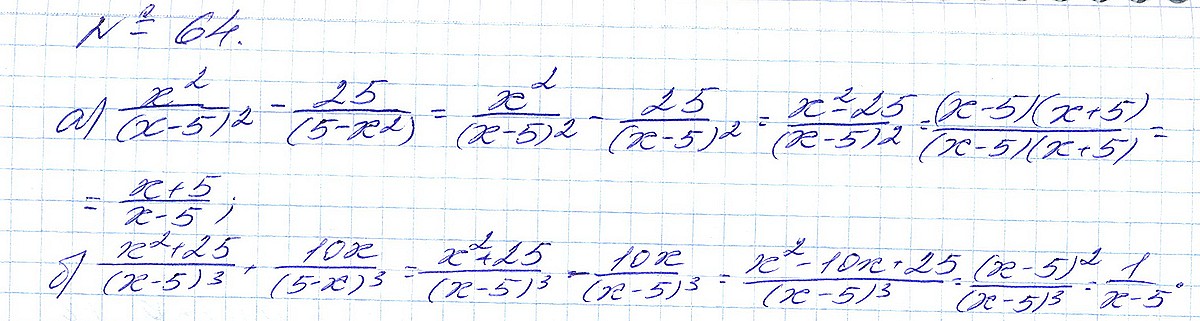 № 64.
а) x²/(x-5)² - 25/(5-x²) = x²/(x-5)² - 25/(x-5)² = x²-25/(x-5)² = (x-5)(x+5)/(x-5)(x+5) =
= x+5/x-5;
б) x²+25/(x-5)³ + 10x/(5-x)³ = x²+25/(x-5)³ - 10x/(x-5)³ = x²-10x+25/(x-5)³ = (x-5)²/(x-5)³ = 1/x-5.